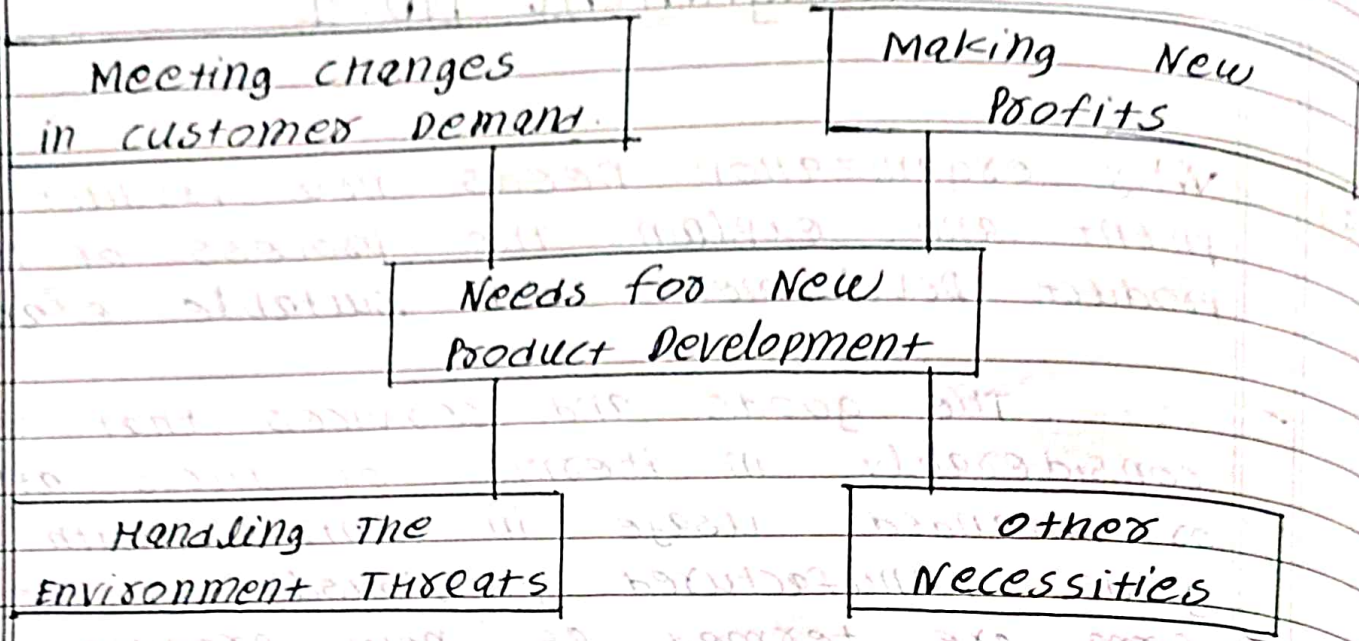 Meeting changes
in customer Demand.
Making New
Profits
Needs for New
Product Development
Handling The
Environment THreats
Other
Necessities